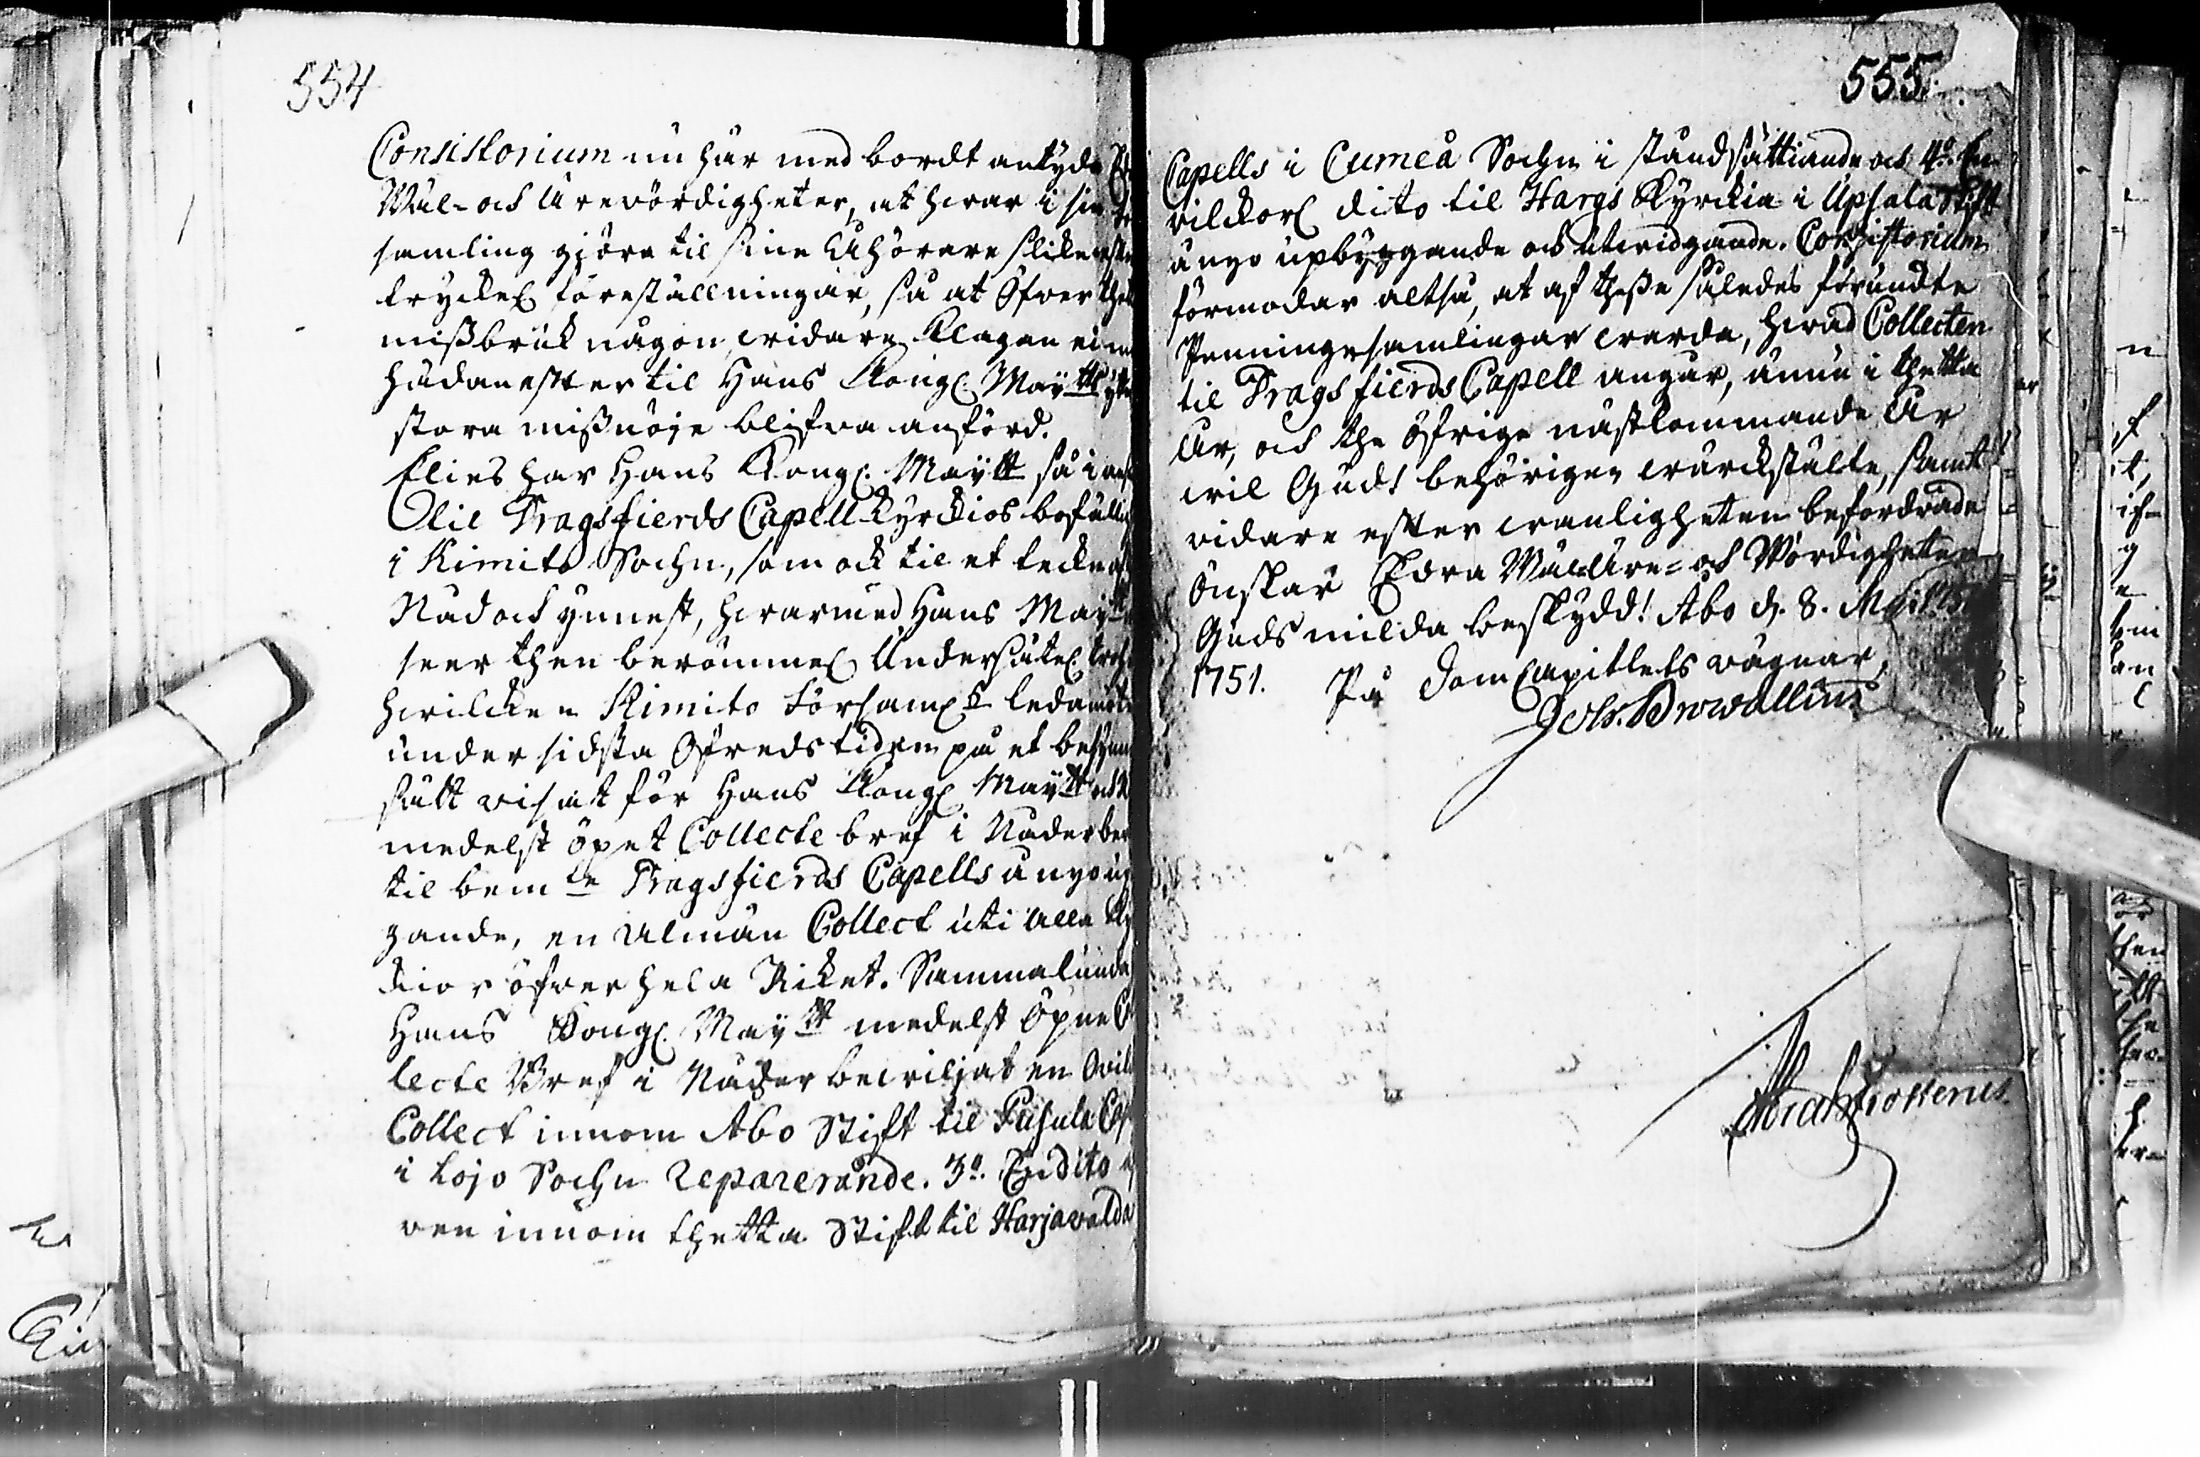 554
Consistorium nu här med bordt antyda
Wäl- och Ärewördigheter, at hwar i sin
samling giöra til sine Åhörare slike efter
tryckel: föreställningar, så at öfwer thet
mißbruk någon widare klagan ei må
hädanefter til Hans Kongl: Maÿtts
stora mißnöje blifwa anförd.
Elies har Hans Kongl: Maÿtt så i an
Dragsfierds Capell kyrckios
i Kimito Sochn, som ock til et tecken af
Nåd och ynnest, hwarmed Hans Maÿtt
seer then berömmel: Undersåtel:
hwilcken Kimito Församl: ledamöter
under sidsta Ofredstiden på et
sätt wisat för Hans Kongl: Maÿtt och
medelst öpet Collecte bref i Nåder be
til bemte Dragsfierds Capells å nyo up
gande, en Almän Collect uti alla Kyr
kior öfwer hela Riket. Sammalunda
Hans Kongl: Maÿtt medelst Öpne Col
lecte Bref i Nåder bewiljat en
Collect innom Åbo Stift til Pusula Cap
i Lojo Sochn reparerande. 3o. En dito
ven innom thetta Stift til Harjavalda
555.
Capells i Cumeå Sochn i ståndsättiande och 4o. En
vilckorl: dito til Hargs Kyrckia i Upsala Stift
å nyo upbyggande och utwidgande. Consistorium
förmodar altså, at af theße således förundte
Penningesamlingar warda, hwad Collecten
til Dragsfierds Capell angår, ännu i thetta
År, och the öfrige nästkommande År
wil Gudt behörigen wärckstälte, samt
vidare efter wanligheten befordrade
Önskar Edra Wäl Äre- och Wördigheter
Guds milda beskydd! Åbo d. 8. Maji 1751
1751. På DomCapitlets wägnar,
Joh: Browallius